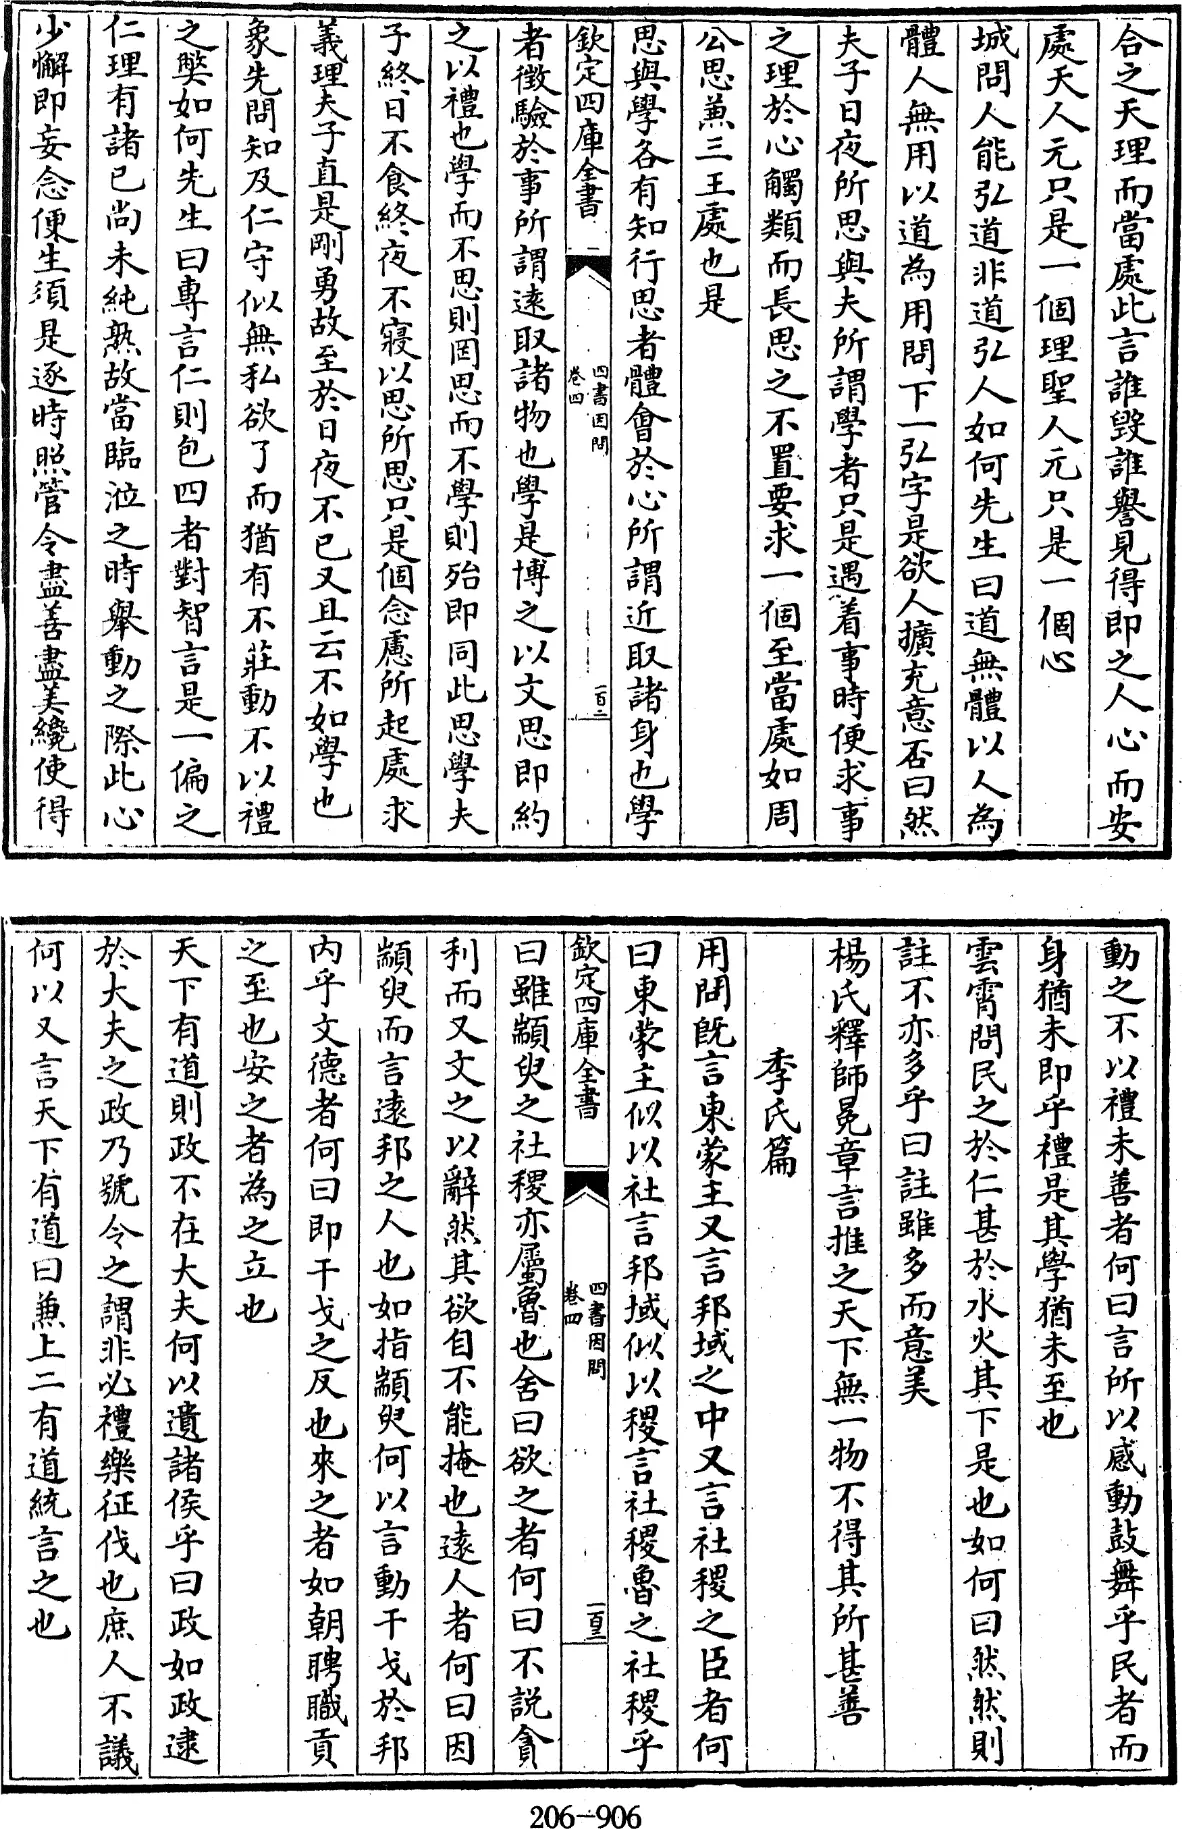 合之天理而當處此言誰毀誰譽見得即之人心而安
處天人元只是一個理聖人元只是一個心
城問人能弘道非道弘人如何先生曰道無體以人為
體人無用以道為用問下一弘字是欲人擴充意否曰然
夫子日夜所思與夫所謂學者只是遇着事時便求事
之理於心觸類而長思之不置要求一個至當處如周
公思兼三王處也是
思與學各有知行思者體會於心所謂近取諸身也學
欽定四庫全書
四書因問
卷四
一百二
者徵驗於事所謂遠取諸物也學是博之以文思即約
之以禮也學而不思則罔思而不學則殆即同此思學夫
子終日不食終夜不寢以思所思只是個念慮所起處求
義理夫子直是剛勇故至於日夜不已又且云不如學也
象先問知及仁守似無私欲了而猶有不莊動不以禮
之獘如何先生曰專言仁則包四者對智言是一偏之
仁理有諸已尚未純熟故當臨涖之時舉動之際此心
少懈即妄念便生須是逐時照管令盡善盡美纔使得
動之不以禮未善者何曰言所以感動鼓舞乎民者而
身猶未即乎禮是其學猶未至也
雲霄問民之於仁甚於水火其下是也如何曰然然則
註不亦多乎曰註雖多而意美
楊氏釋師冕章言推之天下無一物不得其所甚善
季氏篇
用問既言東蒙主又言邦域之中又言社稷之臣者何
曰東蒙主似以社言邦域似以稷言社稷魯之社稷乎
欽定四庫全書
四書因問
卷四
一百三
曰雖顓臾之社稷亦屬魯也舍曰欲之者何曰不說貪
利而又文之以辭然其欲自不能掩也遠人者何曰因
顓臾而言遠邦之人也如指顓臾何以言動干戈於邦
内乎文德者何曰即干戈之反也來之者如朝聘職貢
之至也安之者為之立也
天下有道則政不在大夫何以遺諸侯乎曰政如政逮
於大夫之政乃號令之謂非必禮樂征伐也庶人不議
何以又言天下有道曰兼上二有道統言之也
206-906